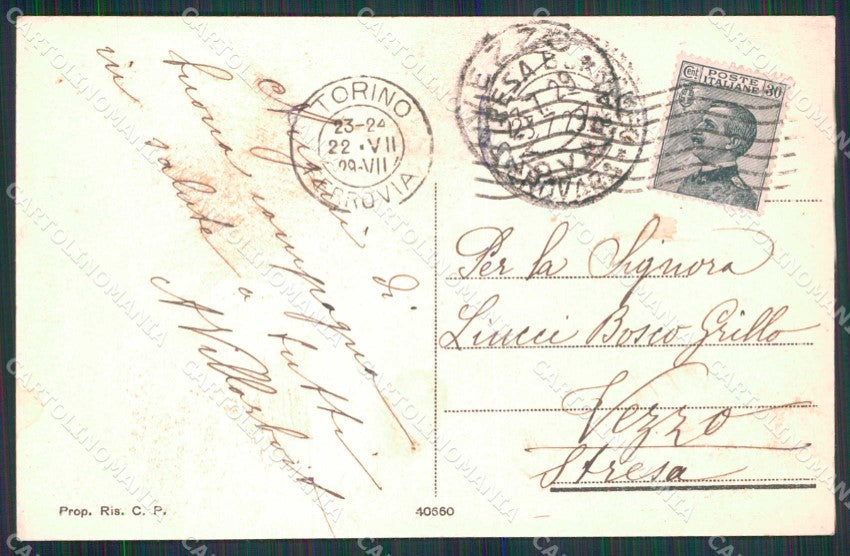 Auguri di
buona compagnia
in salute a tutti
TORINO
23-24
22 · VII
29-VII
FERROVIA
VEZZO
STRESA
POSTE
ITALIANE
Cent
30
Per la Signora
Liucci Bosco Grillo
Vezzo
Stresa
Prop. Ris. C. P.
40660
CARTOLINOMANIA